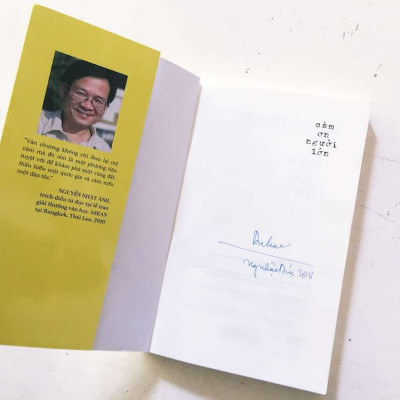 "Văn chương không chỉ đem lại mỹ
cảm mà đó còn là một phương tiện
tuyệt vời để khám phá một vùng đất,
thấu hiểu một quốc gia và cảm mến
một dân tộc."
NGUYỄN NHẬT ÁNH,
trích diễn từ đọc tại lễ trao
giải thưởng văn học ASEAN
tại Bangkok, Thái Lan, 2010
cảm
ơn
người
lớn